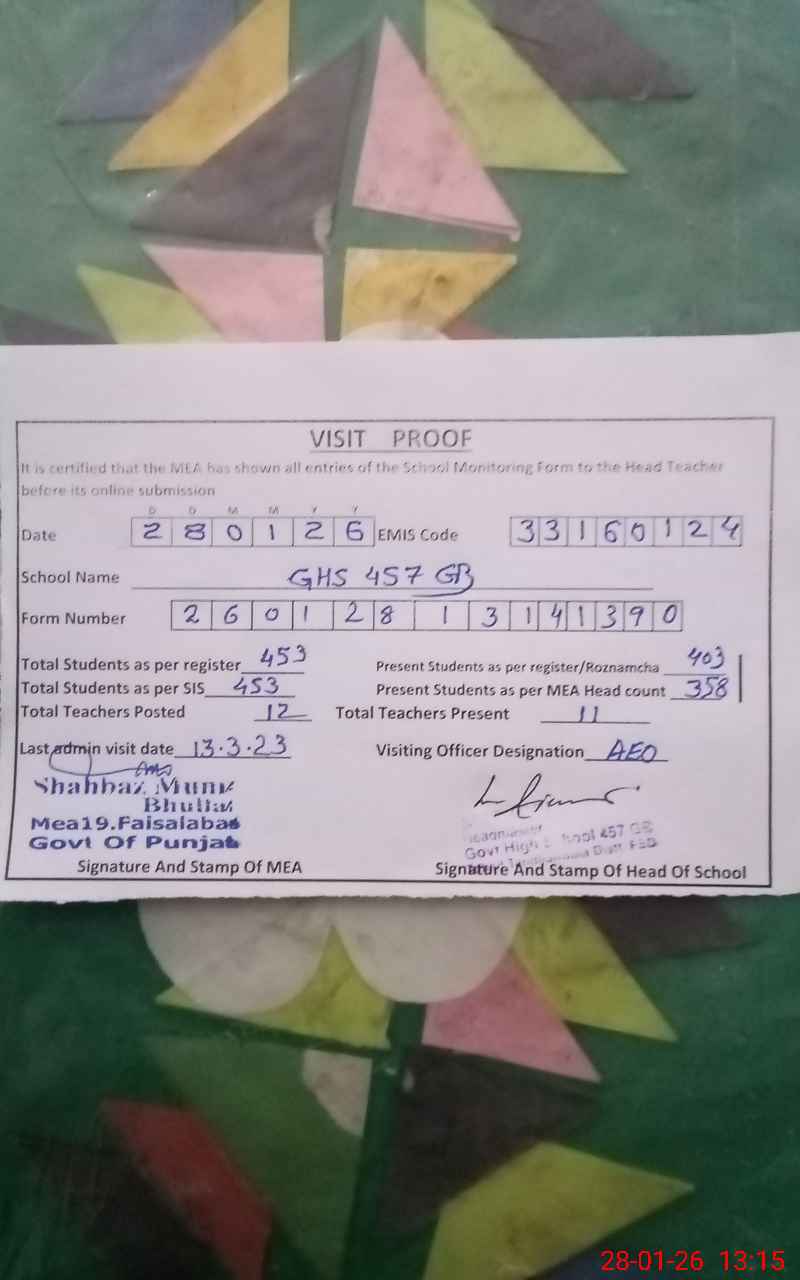 VISIT PROOF
It is certified that the MEA has shown all entries of the School Monitoring Form to the Head Teacher
before its online submission
D D M M Y Y
Date 2 8 0 1 2 6 EMIS Code 3 3 1 6 0 1 2 4
School Name GHS 457 GB
Form Number 2 6 0 1 2 8 1 3 1 4 1 3 9 0
Total Students as per register 453 Present Students as per register/Roznamcha 403
Total Students as per SIS 453 Present Students as per MEA Head count 358
Total Teachers Posted 12 Total Teachers Present 11
Last admin visit date 13.3.23 Visiting Officer Designation AEO
Shahbaz Munir
Bhullar
Mea19.Faisalabad
Govt Of Punjab
Govt High School 457 GB
Distt FSD
Signature And Stamp Of MEA Signature And Stamp Of Head Of School
28-01-26 13:15